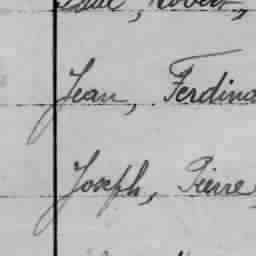 Robert,
Jean, Ferdina
Joseph, Pierre,